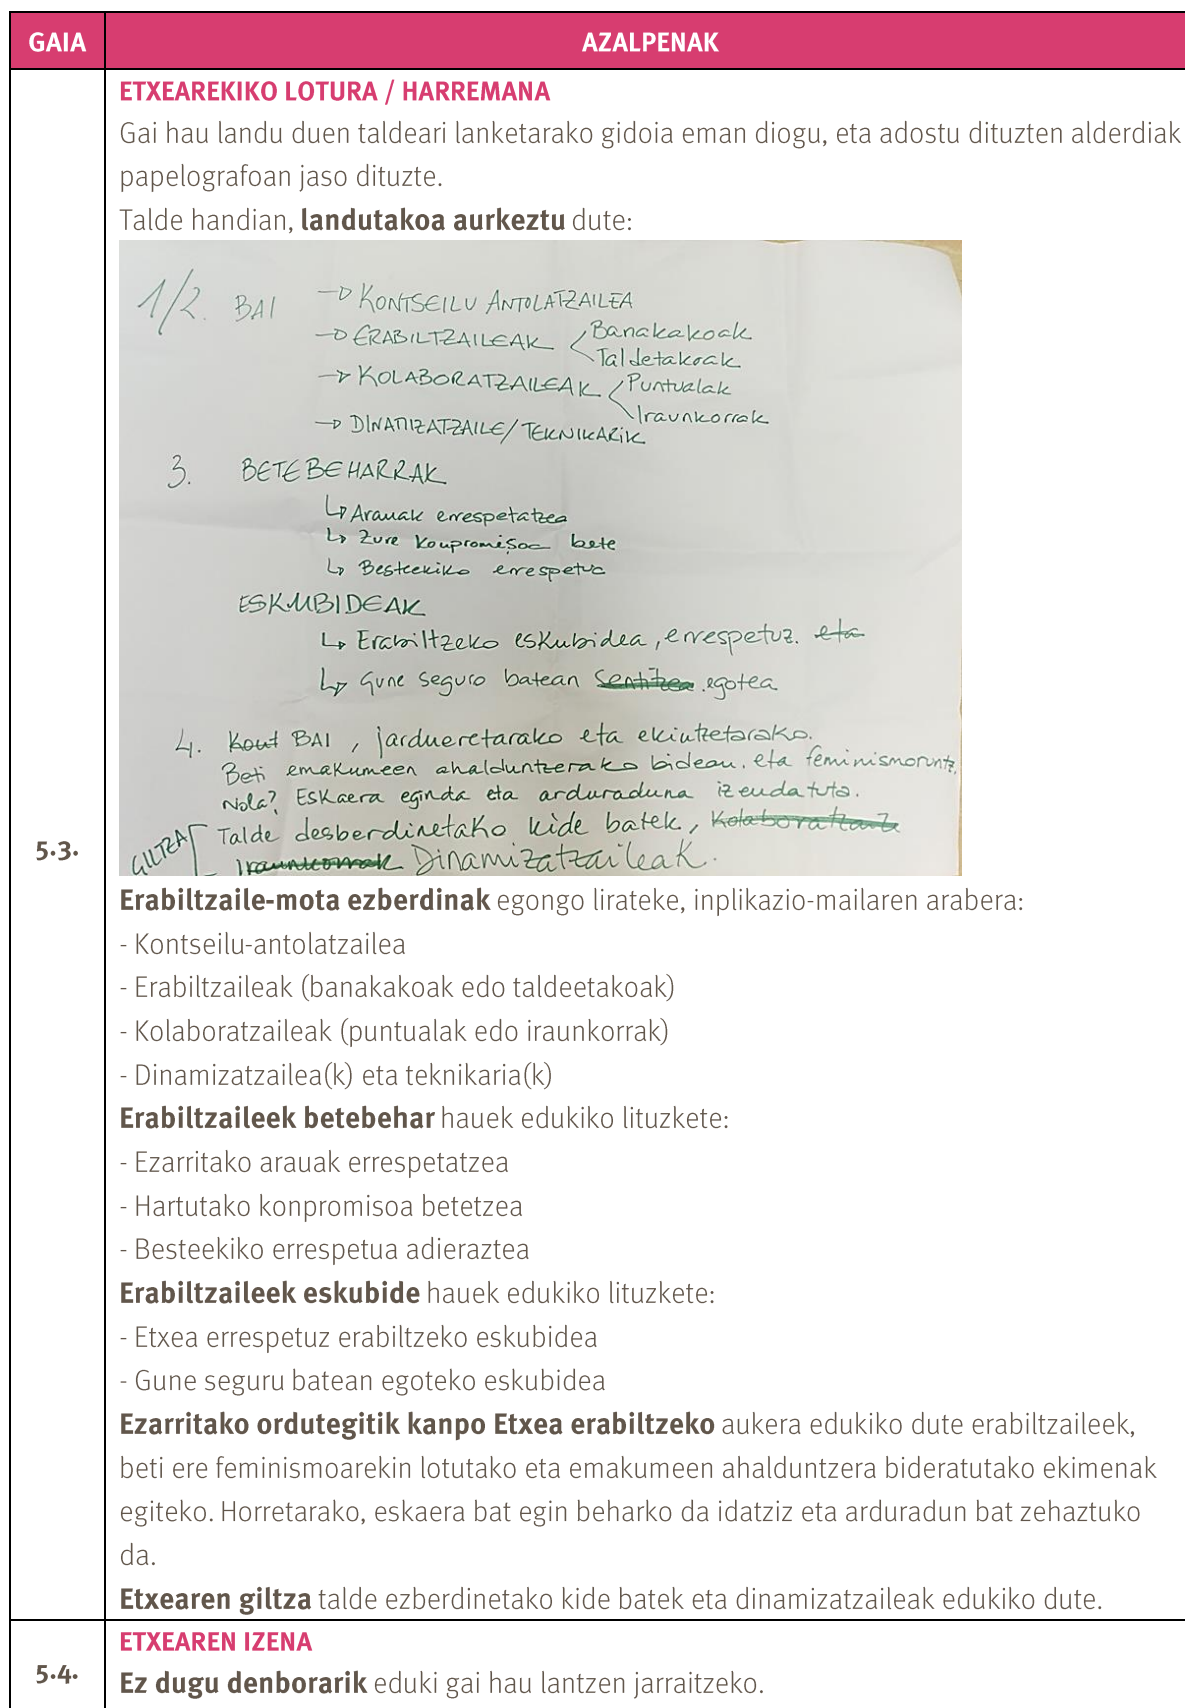 GAIA AZALPENAK
ETXEAREKIKO LOTURA / HARREMANA
Gai hau landu duen taldeari lanketarako gidoia eman diogu, eta adostu dituzten alderdiak
papelografoan jaso dituzte.
Talde handian, landutakoa aurkeztu dute:
1/2. BAI → KONTSEILU ANTOLATZAILEA
→ ERABILTZAILEAK Banakakoak
Taldetakoak
→ KOLABORATZAILEAK Puntualak
Iraunkorrak
→ DINATIZATZAILE/TEKNIKARIK
3. BETEBEHARRAK
↳ Arauak errespetatzea
↳ Zure konpromisoa bete
↳ Besteekiko errespetua
ESKUBIDEAK
↳ Erabiltzeko eskubidea, errespetuz. eta
↳ Gune seguro batean sentitzea egotea
4. Kont BAI, jardueretarako eta ekintzetarako.
Beti emakumeen ahalduntzerako bidean. eta feminismorantz.
Nola? Eskaera eginda eta arduraduna izendatuta.
GILTZA Talde desberdinetako kide batek, Kolaboratzaile
Iraunkorrak Dinamizatzaileak.
5.3.
Erabiltzaile-mota ezberdinak egongo lirateke, inplikazio-mailaren arabera:
- Kontseilu-antolatzailea
- Erabiltzaileak (banakakoak edo taldeetakoak)
- Kolaboratzaileak (puntualak edo iraunkorrak)
- Dinamizatzailea(k) eta teknikaria(k)
Erabiltzaileek betebehar hauek edukiko lituzkete:
- Ezarritako arauak errespetatzea
- Hartutako konpromisoa betetzea
- Besteekiko errespetua adieraztea
Erabiltzaileek eskubide hauek edukiko lituzkete:
- Etxea errespetuz erabiltzeko eskubidea
- Gune seguru batean egoteko eskubidea
Ezarritako ordutegitik kanpo Etxea erabiltzeko aukera edukiko dute erabiltzaileek,
beti ere feminismoarekin lotutako eta emakumeen ahalduntzera bideratutako ekimenak
egiteko. Horretarako, eskaera bat egin beharko da idatziz eta arduradun bat zehaztuko
da.
Etxearen giltza talde ezberdinetako kide batek eta dinamizatzaileak edukiko dute.
ETXEAREN IZENA
5.4.
Ez dugu denborarik eduki gai hau lantzen jarraitzeko.